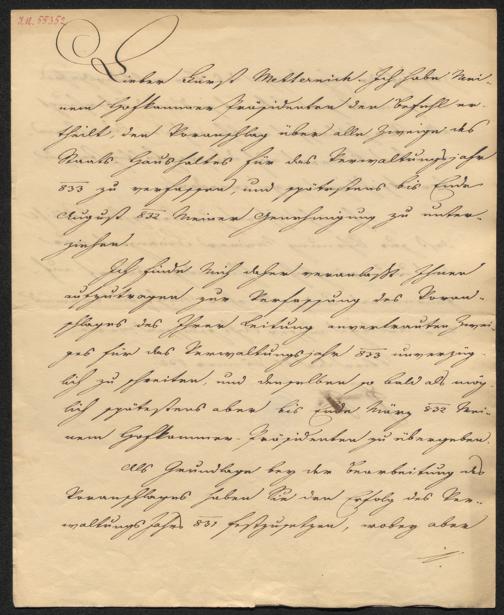 I.N. 55352
Lieber Fürst Metternich. Ich habe Mei-
nem Hofkammer Präsidenten den Befehl er-
theilt, den Voranschlag über alle Zweige des
Staats Haushaltes für das Verwaltungsjahr
833 zu verfassen, und spätestens bis Ende
August 832 Meiner Genehmigung zu unter-
ziehen.
Ich finde Mich daher veranlaßt Ihnen
aufzutragen zur Verfassung des Voran-
schlages des Ihrer Leitung anvertrauten Zwei-
ges für das Verwaltungsjahr 833 unverzüg-
lich zu schreiten, und denselben so bald als mög-
lich spätestens aber bis Ende März 832 Mei-
nem Hofkammer-Präsidenten zu übergeben.
Als Grundlage bey der Bearbeitung des
Voranschlages haben Sie den Erfolg des Ver-
waltungs Jahrs 831 festzusetzen, wobey aber